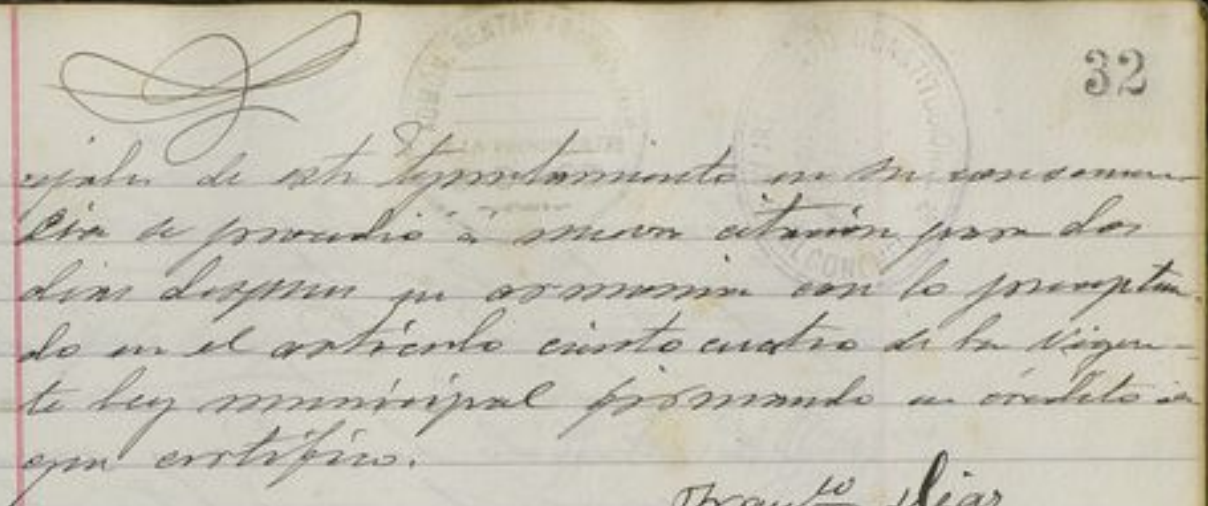 32
cejales de este Ayuntamiento en su consecuen
cia se procedió á nueva citación para dos
dias despues en armonia con lo preceptua
do en el artículo ciento cuatro de la vigen-
te ley municipal firmando en crédito de
que certifico.
Díaz